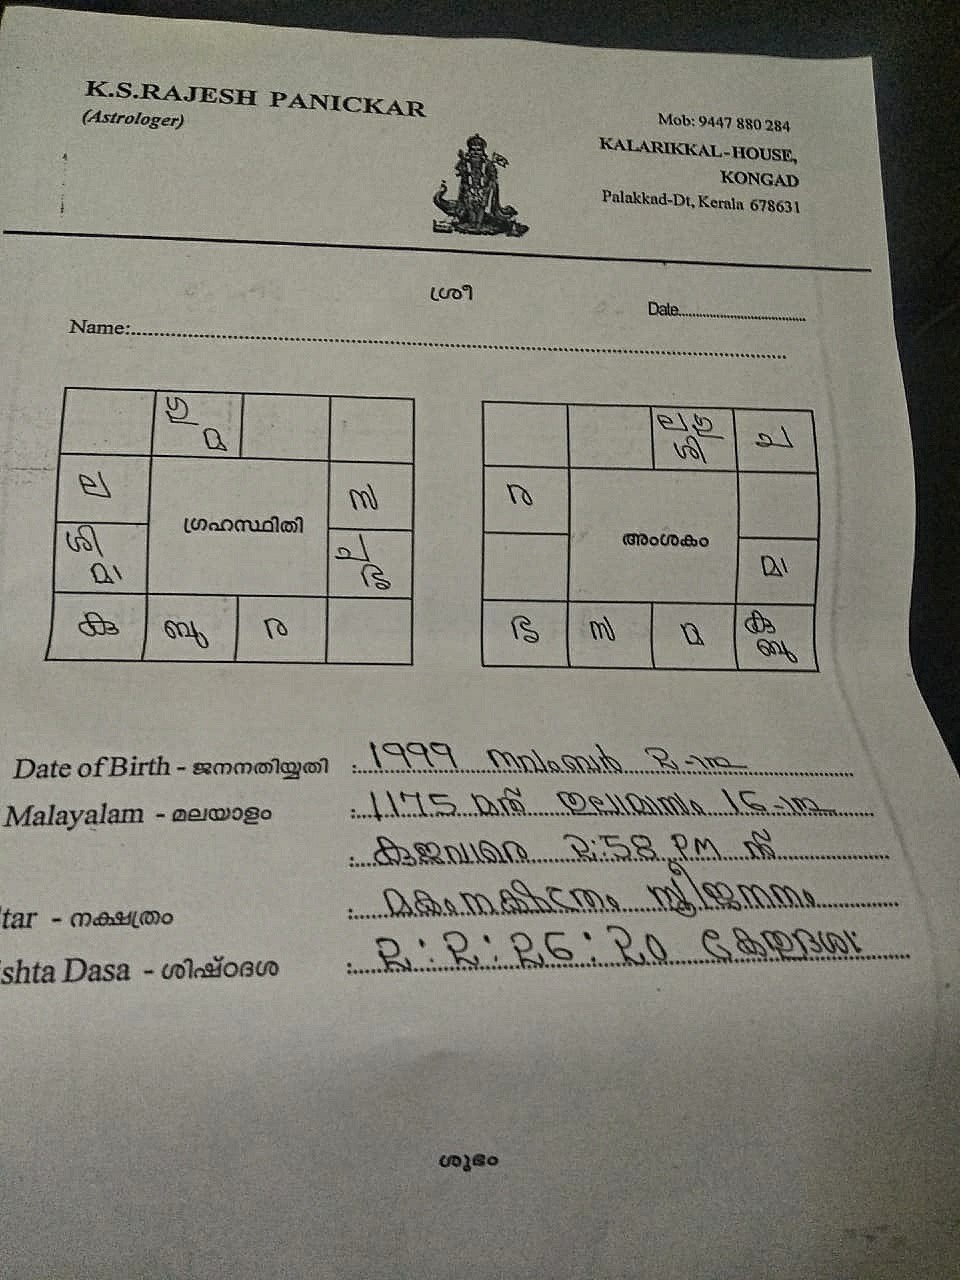 K.S.RAJESH PANICKAR
(Astrologer)
Mob: 9447 880 284
KALARIKKAL-HOUSE,
KONGAD
Palakkad-Dt, Kerala 678631
ശ്രീ
Date
Name:
ഗു
മ
ല
ഗ്രഹസ്ഥിതി
സ
ശി
മാ
ച
ശു
കു
ബു
ര
ലഗു
ശി
ച
ര
അംശകം
മാ
ശു
സ
മ
കു
ബു
Date of Birth - ജനനതിയ്യതി : 1999 നവംബർ 2-ന
Malayalam - മലയാളം : 1175 മത് തുലാമാസം 16-ന
: കുജവാരെ 2:58 PM ന്
tar - നക്ഷത്രം : മകംനക്ഷത്രം സ്ത്രീജനനം
shta Dasa - ശിഷ്ഠദശ : 2:2:26:20 കേതുദശാ
ശുഭം